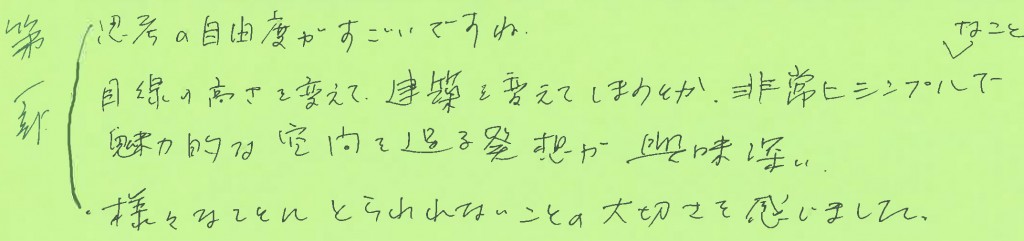 第一部
・思考の自由度がすごいですね。
目線の高さを変えて、建築を変えてしまうとか、非常にシンプルで
なこと
魅力的な空間を造る発想が興味深い。
・様々なことにとらわれないことの大切さを感じました。